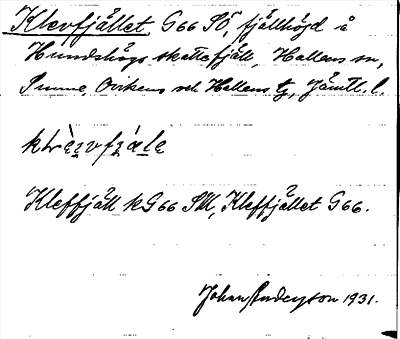 Klevfjället G 66 SÖ, fjällhöjd å
Hundshögs skattefjäll, Hallens sn,
Sunne, Ovikens och Hallens tg, Jämtl. l.
Kleffjäll kG 66 SM, Kleffjället G 66.
Johan Anderson 1931.